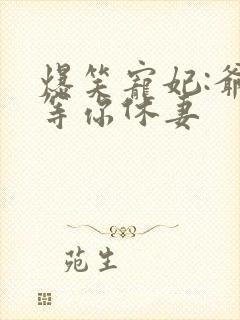 爆笑寵妃:爺
等你休妻
苑生